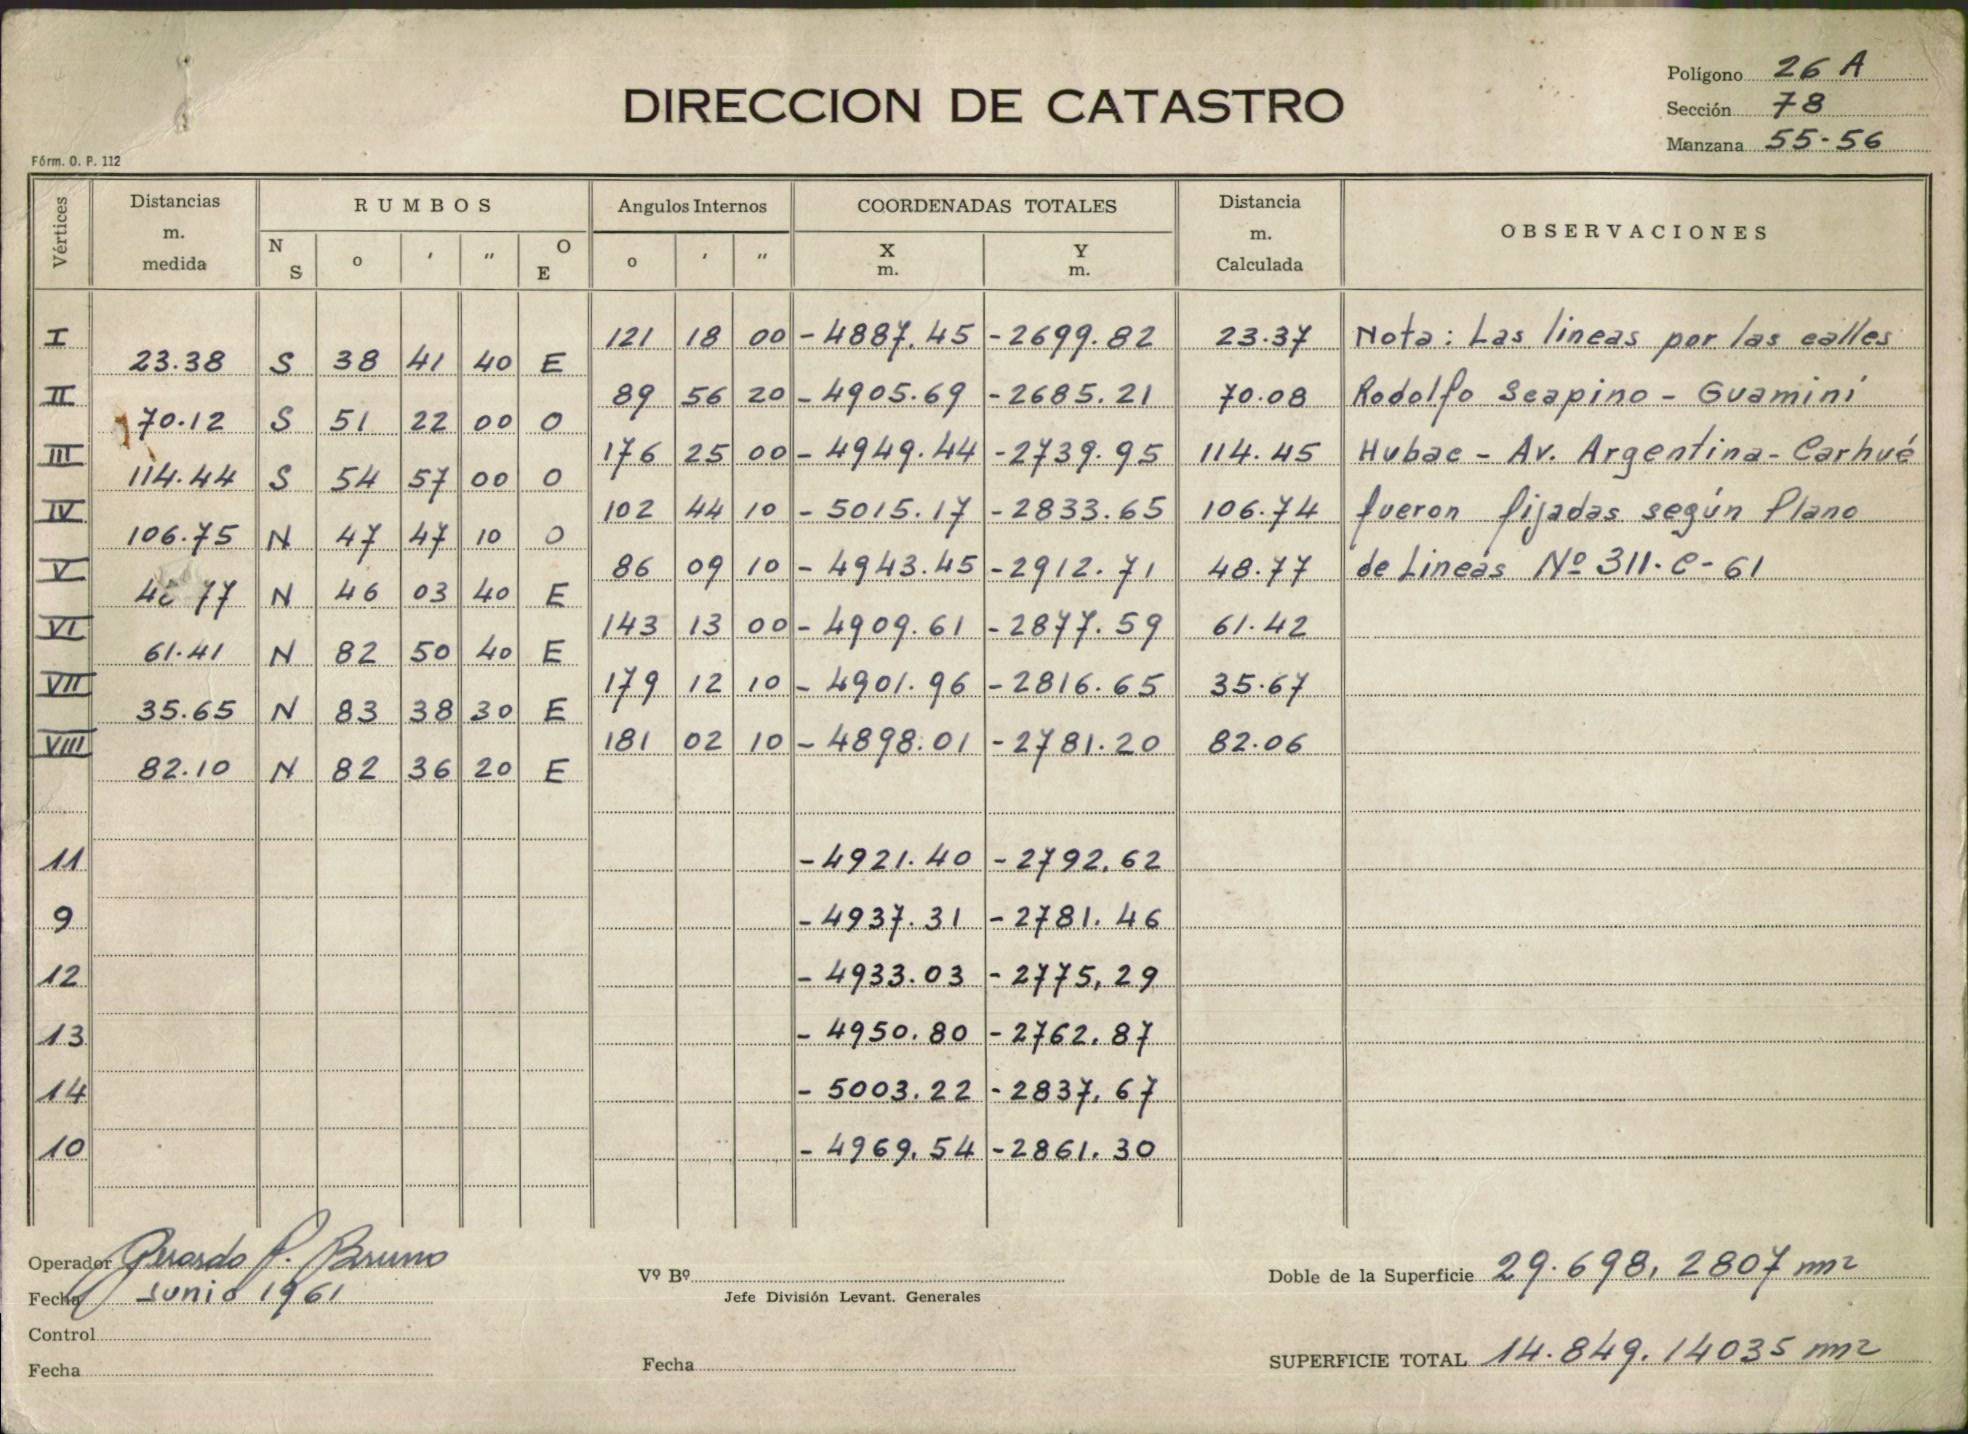 Polígono 26 A
DIRECCION DE CATASTRO
Sección 78
Manzana 55-56
Fórm. O. P. 112
Vértices Distancias m. medida RUMBOS Angulos Internos COORDENADAS TOTALES Distancia m. Calculada OBSERVACIONES
N S o ' " O E o ' " X m. Y m.
I 121 18 00 -4887.45 -2699.82 23.37 Nota: Las lineas por las calles
23.38 S 38 41 40 E
II 89 56 20 -4905.69 -2685.21 70.08 Rodolfo Scapino - Guamini
70.12 S 51 22 00 O
III 176 25 00 -4949.44 -2739.95 114.45 Hubac - Av. Argentina - Carhué
114.44 S 54 57 00 O
IV 102 44 10 -5015.17 -2833.65 106.74 fueron fijadas según Plano
106.75 N 47 47 10 O
V 86 09 10 -4943.45 -2912.71 48.77 de Lineas Nº 311-C-61
77 N 46 03 40 E
VI 143 13 00 -4909.61 -2877.59 61.42
61.41 N 82 50 40 E
VII 179 12 10 -4901.96 -2816.65 35.67
35.65 N 83 38 30 E
VIII 181 02 10 -4898.01 -2781.20 82.06
82.10 N 82 36 20 E
11 -4921.40 -2792,62
9 -4937.31 -2781.46
12 -4933.03 -2775,29
13 -4950.80 -2762.87
14 -5003.22 -2837.67
10 -4969.54 -2861.30
Operador Gerardo P. Bruno
Fecha Junio 1961
Control
Fecha
Vº Bº
Jefe División Levant. Generales
Fecha
Doble de la Superficie 29.698,2807 m2
SUPERFICIE TOTAL 14.849.14035 m2